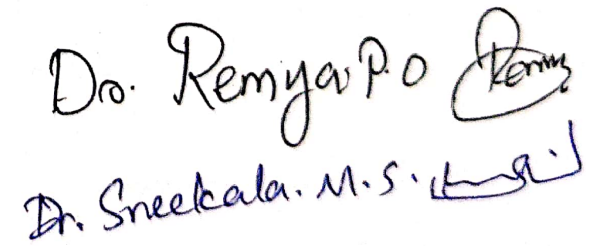 Dr. Remya P.O
Dr. Sreekala. M.S.